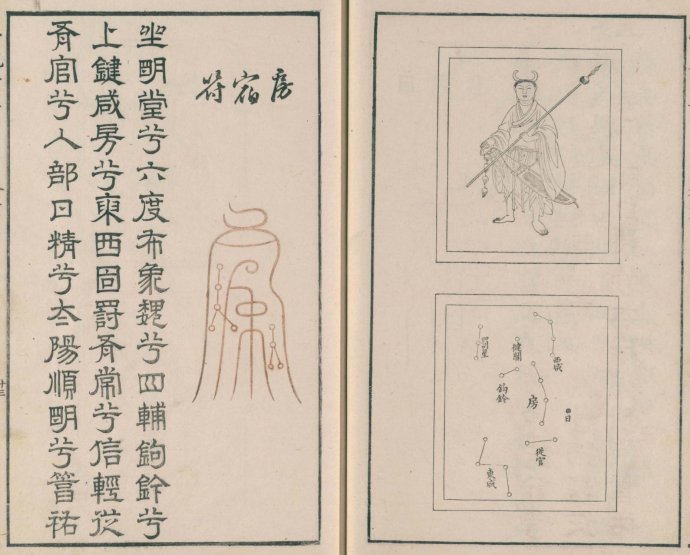 西咸
鍵閉
罰星
日
房
鉤鈐
從官
東咸
房宿符
坐明堂兮六度布象巍兮四輔鉤鈐兮
上鍵咸房兮東西固罰有常兮信輕從
有官兮人部日精兮太陽順明兮祐
十三